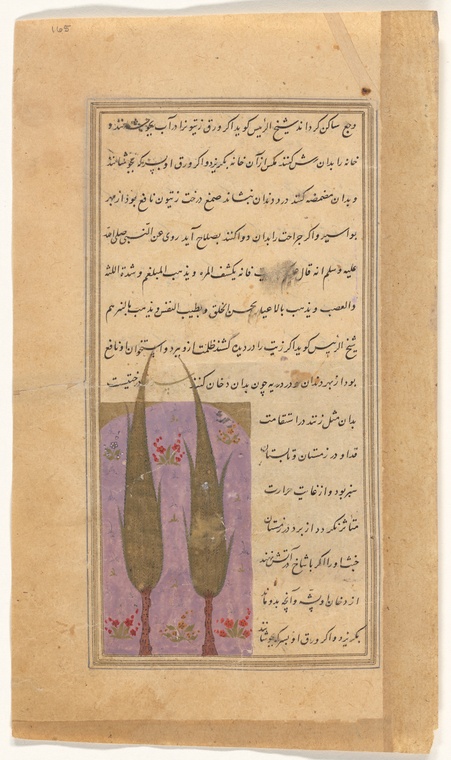 165
وجع ساکن کرداند شیخ الرئیس کوید اکر ورق زیتونرا در آب بجوشانند و
خانه را بدان رش کنند مکس از آن خانه بکریزد و اکر ورق او بسرکه بجوشانند
و بدان مضمضه کنند درد دندان بنشاند صمغ درخت زیتون نافع بود از بهر
بواسیر و اکر جراحت را بدان دوا کنند بصلاح آید روی عن النبی صلی الله
علیه وسلم انه قال فانه یکشف المره و یذهب البلغم و شدة اللثة
والعصب و یذهب بالاعیا و یحسن الخلق و یطیب النفس و یذهب بالهم
شیخ الرئیس کوید اکر زیت را در دیده کشند ظلمت ازو ببرد و استخوان او نافع
بود از بهر دندان و درد ریه چون بدان دخان کنند درختیست
بدان مثل زنند در استقامت
قد او در زمستان و تابستان
سبز بود و از غایت حرارت
متاثر نکردد از برد در زمستان
خشب او را اکر با شاخ در آتش نهند
از دخان او پشه و آنچه بدو ماند
بکریزد و اکر ورق او بسرکه بجوشانند